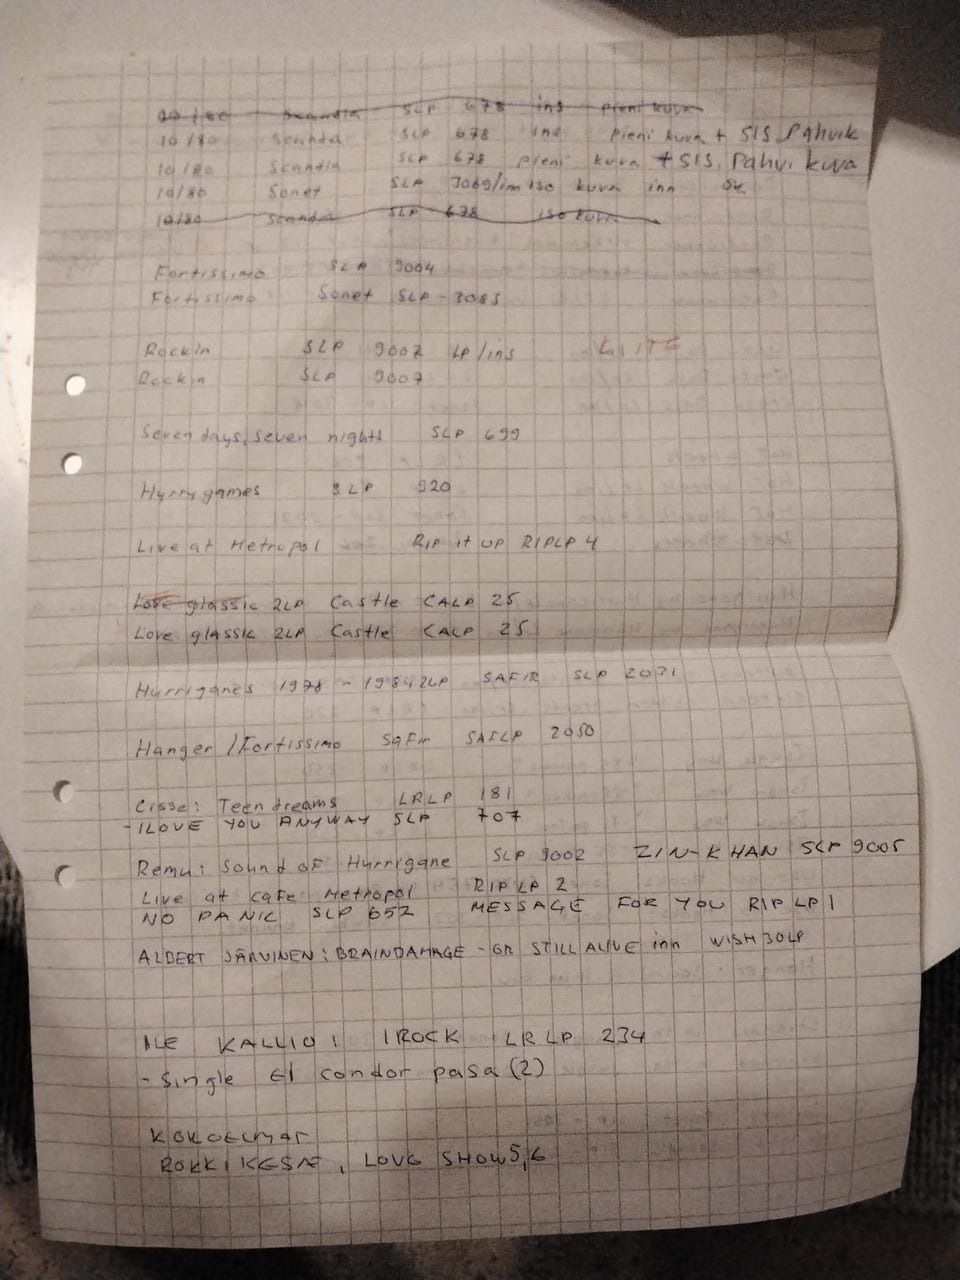 10/80 Scandia SLP 678 ins pieni kuva
10/80 Scandia SLP 678 ins pieni kuva + SIS. Pahvik
10/80 Scandia SLP 678 pieni kuva + SIS. Pahvi kuva
10/80 Sonet SLP 3069/inn iso kuva inn
10/80 Scandia SLP 678 iso kuva
Fortissimo SLP 9004
Fortissimo Sonet SLP - 3083
Rockin SLP 9007 LP/ins
Rockin SLP 9007
Seven days, seven nights SLP 699
Hurrygames SLP 920
Live at Metropol RIP it UP RIPLP 4
Love glassic 2LP Castle CALP 25
Love glassic 2LP Castle CALP 25
Hurriganes 1978 - 1984 2LP SAFIR SLP 2031
Hanger / Fortissimo Safir SAFLP 2050
Cisse: Teen dreams LRLP 181
- I LOVE YOU ANYWAY SLP 707
Remu: Sound of Hurrigane SLP 9002 ZIN-KHAN SLP 9005
Live at cafe Metropol RIP LP 2
NO PANIC SLP 652 MESSAGE FOR YOU RIP LP 1
ALBERT JÄRVINEN: BRAINDAMAGE - OR STILL ALIVE inn WISH 30LP
ILE KALLIO: I ROCK LRLP 234
- Single El condor pasa (2)
KOKOELMAT
ROKKIKESÄ, LOVE SHOW 5,6